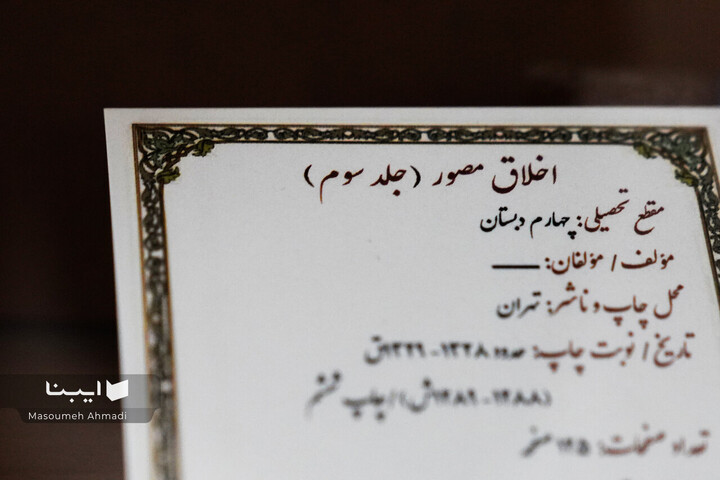 اخلاق مصور (جلد سوم)
مقطع تحصیلی: چهارم دبستان
مؤلف / مؤلفان: ــــ
محل چاپ و ناشر: تهران
تاریخ / نوبت چاپ: حدود ۱۳۲۸-۱۳۲۹ق
(۱۲۸۸-۱۲۸۹ش) / چاپ ششم
تعداد صفحات: ۱۲۵ صفحه
ایبنا
Masoumeh Ahmadi